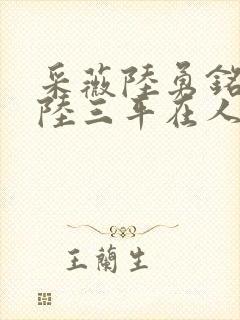 采薇陸勇銘
陸三年在人
王蘭生